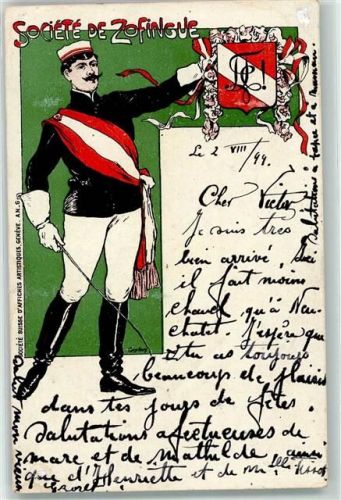 SOCIÉTÉ DE ZOFINGUE
Le 2 VIII/99.
Cher Victor
Je suis très
bien arrivé, ici
il fait moins
chaud qu'à Neu-
chatel. J'espère que
tu as toujours
beaucoup de plaisir
dans tes jours de fêtes.
Salutations affectueuses de
marc et de mathilde
que d'Henriette et de
Salutations à papa et à maman.
SOCIÉTÉ SUISSE D'AFFICHES ARTISTIQUES, GENÈVE.
mon vieux